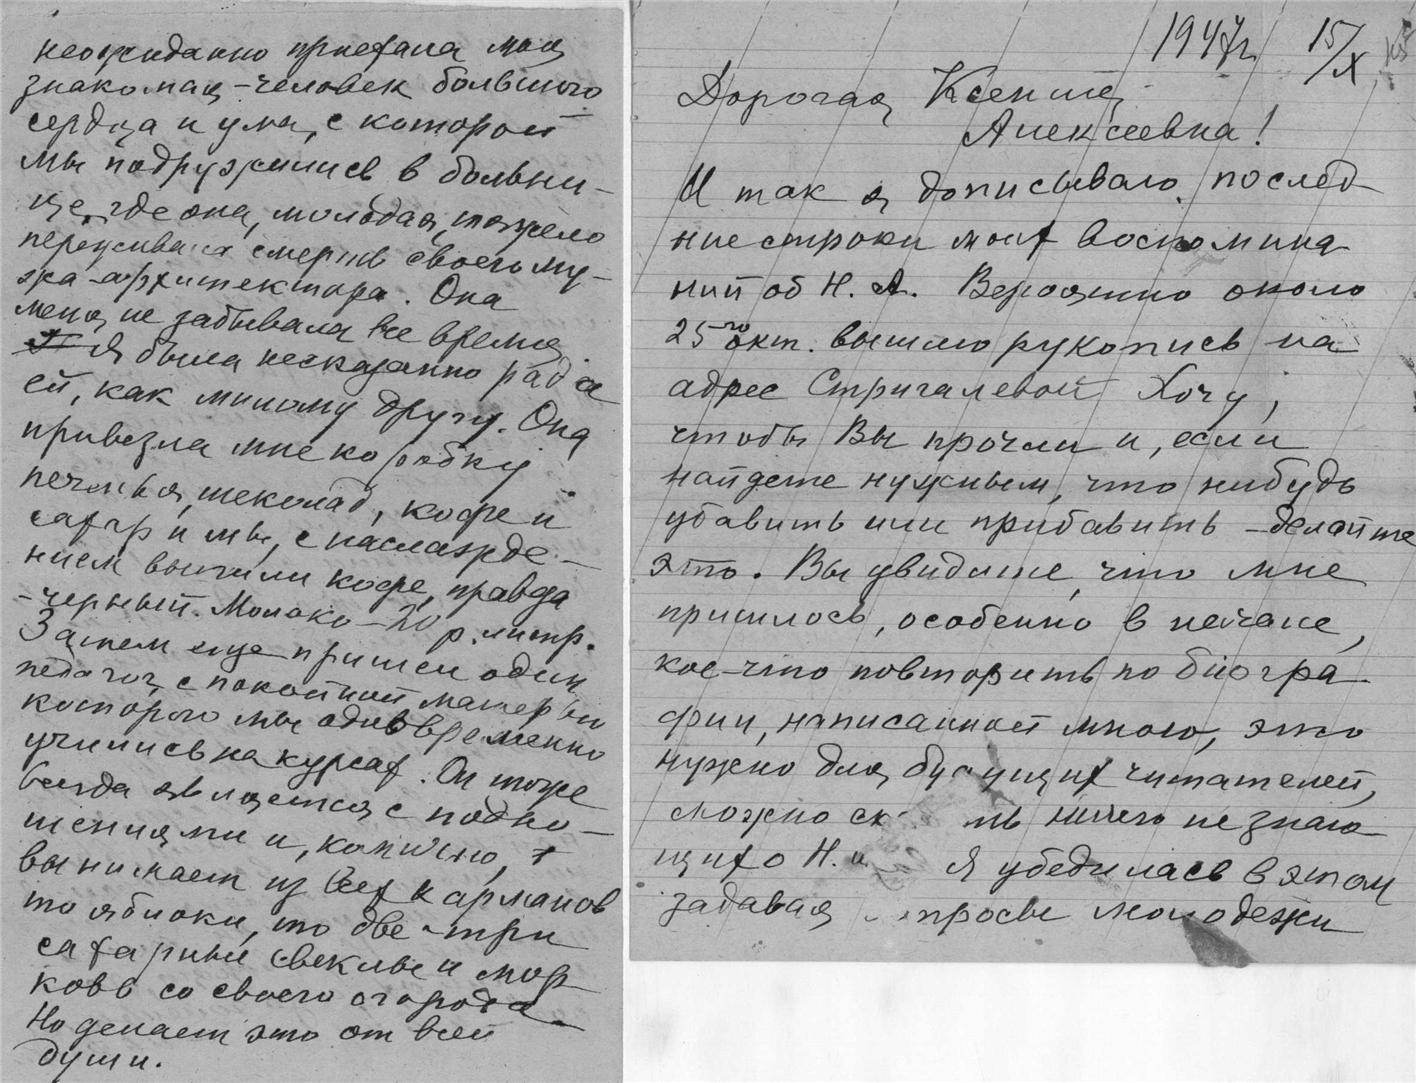 неожиданно приехала моя
знакомая - человек большого
сердца и ума, с которой
мы подружились в больни-
це, где она, молодая, тяжело
переживала смерть своего му-
жа - архитектора. Она
меня не забывала все время
Я была несказанно рада
ей, как милому другу. Она
привезла мне коробку
печенья, шеколад, кофе и
сахар и мы, с наслажде-
нием выпили кофе, правда
- черный. Молоко - 20 р. литр.
Затем еще пришел один
педагог, с покойной матерью
которого мы одновременно
учились на курсах. Он тоже
всегда является с подно-
шениями и, комично,
вынимает из всех карманов
то яблоки, то две-три
сахарные свеклы и мор-
ковь со своего огорода
Но делает это от всей
души.
1947г 15/X
Дорогая Ксения
Алексеевна!
И так я дописываю послед-
ние строки моих воспомина-
ний об Н. А. Вероятно около
25го окт. вышлю рукопись на
адрес Стригалевой Хочу,
чтобы Вы прочли и, если
найдете нужным, что нибудь
убавить или прибавить - делайте
это. Вы увидите, что мне
пришлось, особенно в начале,
кое-что повторить по биогра-
фии, написанной мною, это
нужно для будущих читателей,
можно ск ть ничего не знаю-
щих о Н. Я убедилась в этом
задавая просы молодежи